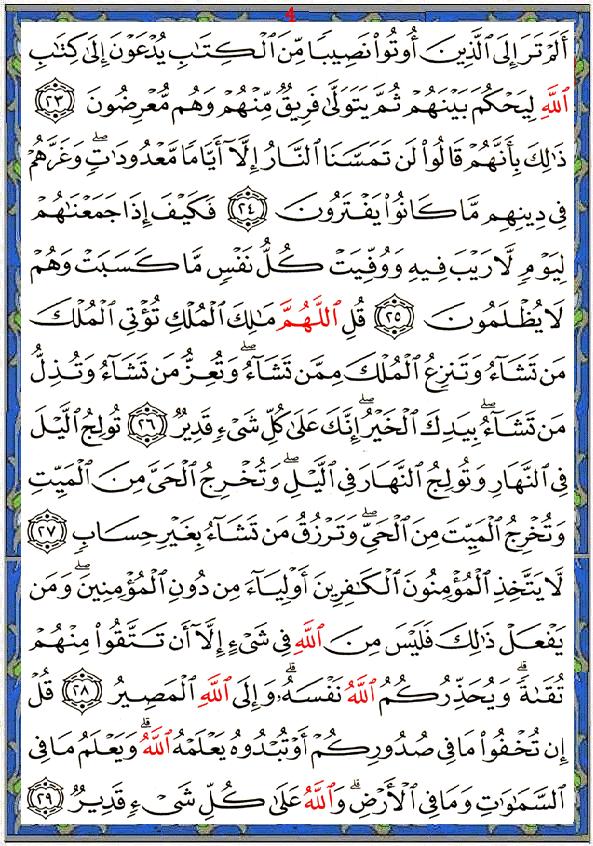 4
أَلَمْ تَرَ إِلَى ٱلَّذِينَ أُوتُوا۟ نَصِيبًا مِّنَ ٱلْكِتَٰبِ يُدْعَوْنَ إِلَىٰ كِتَٰبِ
ٱللَّهِ لِيَحْكُمَ بَيْنَهُمْ ثُمَّ يَتَوَلَّىٰ فَرِيقٌ مِّنْهُمْ وَهُم مُّعْرِضُونَ ٢٣
ذَٰلِكَ بِأَنَّهُمْ قَالُوا۟ لَن تَمَسَّنَا ٱلنَّارُ إِلَّآ أَيَّامًا مَّعْدُودَٰتٍ ۖ وَغَرَّهُمْ
فِى دِينِهِم مَّا كَانُوا۟ يَفْتَرُونَ ٢٤ فَكَيْفَ إِذَا جَمَعْنَٰهُمْ
لِيَوْمٍ لَّا رَيْبَ فِيهِ وَوُفِّيَتْ كُلُّ نَفْسٍ مَّا كَسَبَتْ وَهُمْ
لَا يُظْلَمُونَ ٢٥ قُلِ ٱللَّهُمَّ مَٰلِكَ ٱلْمُلْكِ تُؤْتِى ٱلْمُلْكَ
مَن تَشَآءُ وَتَنزِعُ ٱلْمُلْكَ مِمَّن تَشَآءُ ۖ وَتُعِزُّ مَن تَشَآءُ وَتُذِلُّ
مَن تَشَآءُ ۖ بِيَدِكَ ٱلْخَيْرُ ۖ إِنَّكَ عَلَىٰ كُلِّ شَىْءٍ قَدِيرٌ ٢٦ تُولِجُ ٱلَّيْلَ
فِى ٱلنَّهَارِ وَتُولِجُ ٱلنَّهَارَ فِى ٱلَّيْلِ ۖ وَتُخْرِجُ ٱلْحَىَّ مِنَ ٱلْمَيِّتِ
وَتُخْرِجُ ٱلْمَيِّتَ مِنَ ٱلْحَىِّ ۖ وَتَرْزُقُ مَن تَشَآءُ بِغَيْرِ حِسَابٍ ٢٧
لَّا يَتَّخِذِ ٱلْمُؤْمِنُونَ ٱلْكَٰفِرِينَ أَوْلِيَآءَ مِن دُونِ ٱلْمُؤْمِنِينَ ۖ وَمَن
يَفْعَلْ ذَٰلِكَ فَلَيْسَ مِنَ ٱللَّهِ فِى شَىْءٍ إِلَّآ أَن تَتَّقُوا۟ مِنْهُمْ
تُقَىٰةً ۗ وَيُحَذِّرُكُمُ ٱللَّهُ نَفْسَهُۥ ۗ وَإِلَى ٱللَّهِ ٱلْمَصِيرُ ٢٨ قُلْ
إِن تُخْفُوا۟ مَا فِى صُدُورِكُمْ أَوْ تُبْدُوهُ يَعْلَمْهُ ٱللَّهُ ۗ وَيَعْلَمُ مَا فِى
ٱلسَّمَٰوَٰتِ وَمَا فِى ٱلْأَرْضِ ۗ وَٱللَّهُ عَلَىٰ كُلِّ شَىْءٍ قَدِيرٌ ٢٩